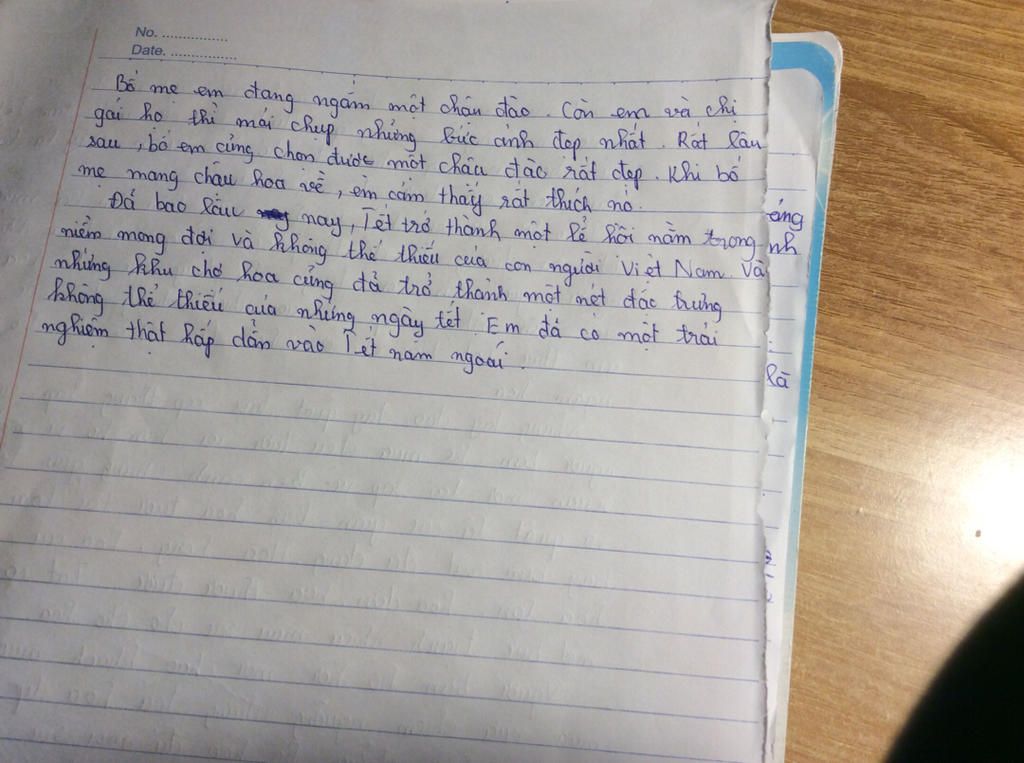 No. ................
Date. ................
Bố mẹ em đang ngắm một chậu đào. Còn em và chị
gái họ thì mải chụp những bức ảnh đẹp nhất. Rất lâu
sau, bố em cũng chọn được một chậu đào rất đẹp. Khi bố
mẹ mang chậu hoa về, em cảm thấy rất thích nó.
Đã bao lâu nay, Tết trở thành một lễ hội nằm trong
niềm mong đợi và không thể thiếu của con người Việt Nam. Và
những khu chợ hoa cũng đã trở thành một nét đặc trưng
không thể thiếu của những ngày tết. Em đã có một trải
nghiệm thật hấp dẫn vào Tết năm ngoái.
nh
là